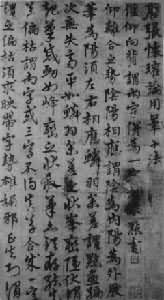 唐張懷瓘論用筆十法
偃仰向背謂兩字併為一字須求點畫
仰離合之勢陰陽相應謂陰為內陽為外
筆為陽須左右相應鱗羽參差謂點畫編
次無失齊平如鱗羽參差之狀峯巒起伏謂
筆蹙衄如峯巒之狀殺筆亦須存結
草偏枯謂兩字或三字不得真草合成字
謂之偏枯須求映帶字勢雄媚邪真失